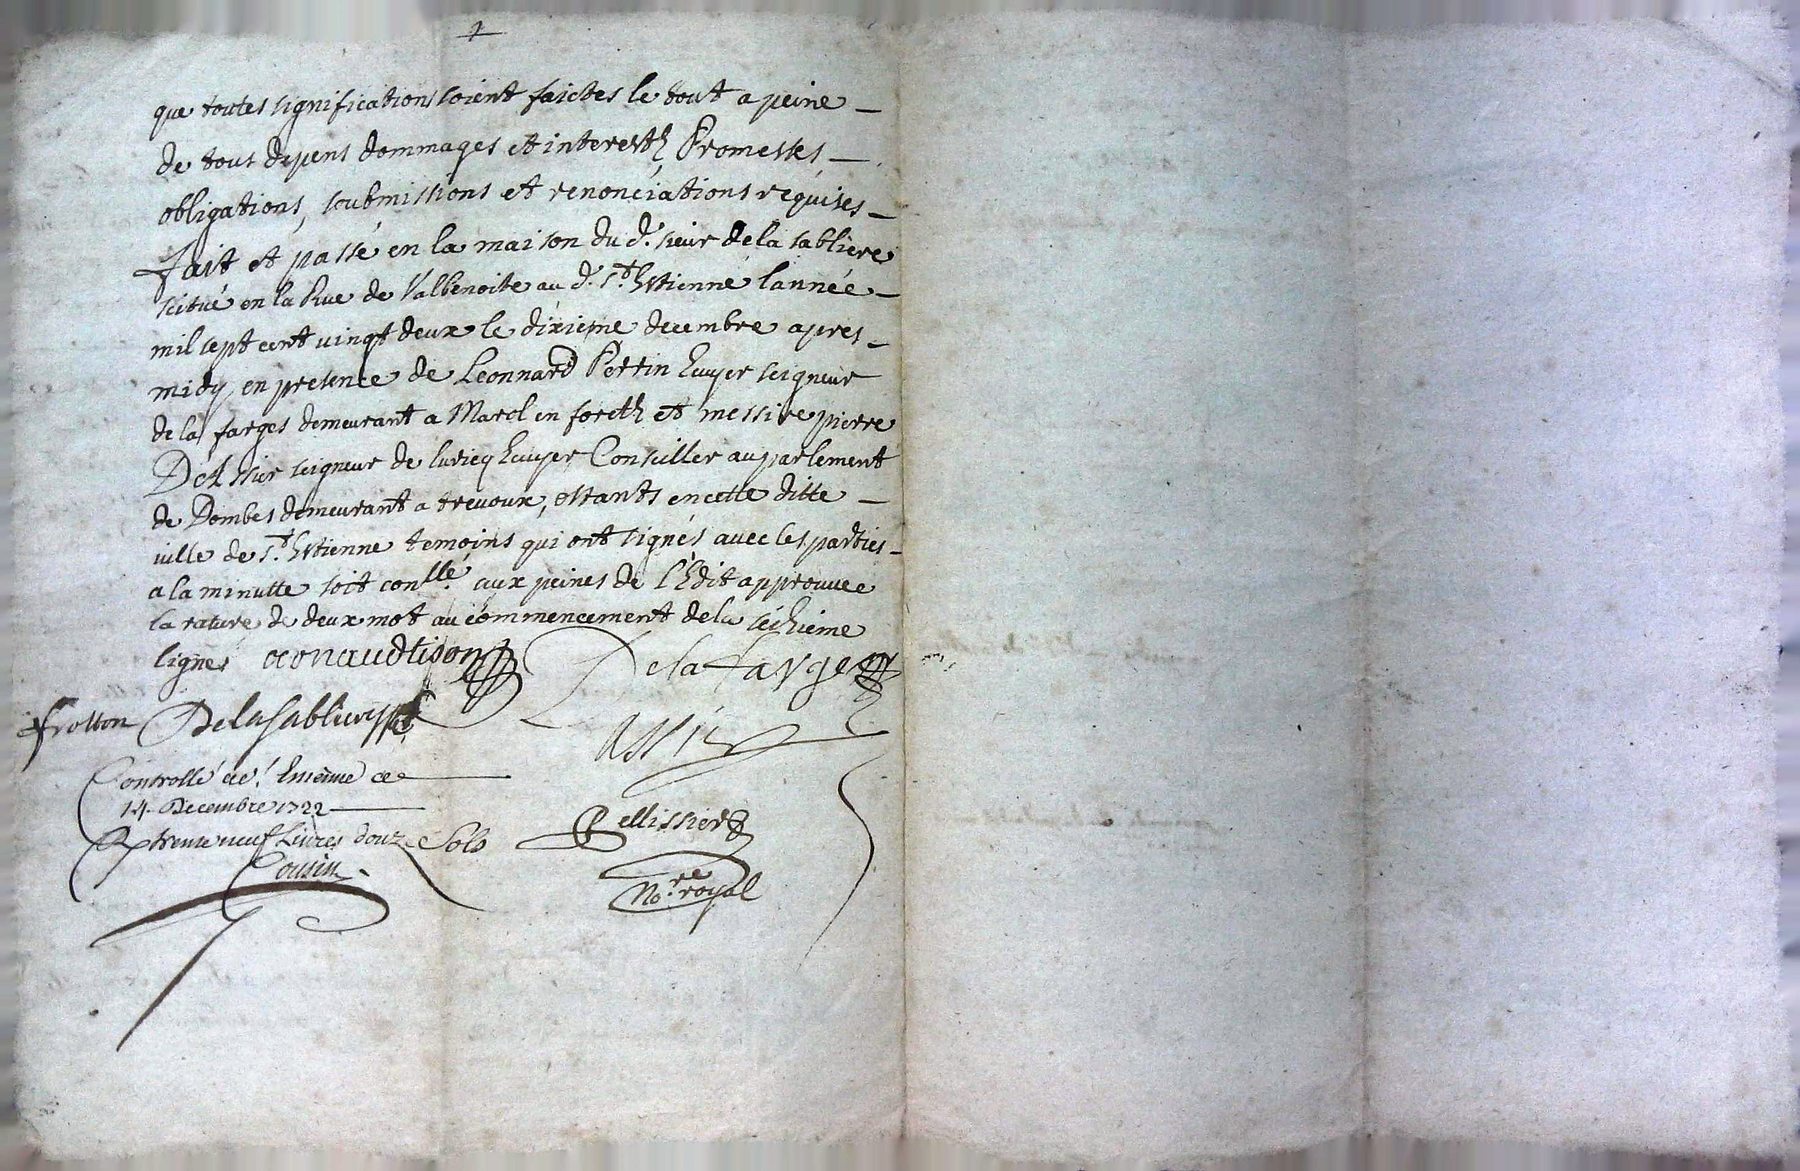 que toutes significations soient faictes le tout a peine
de tous depens dommages et interesth Promesses
obligations, soubmissions et renonciations requises
fait et passé en la maison du d.' sieur de la sabliere
scitué en la Rue de Valbenoite au d.' S.t Estienne lannée
mil sept cent vingt deux le dixieme decembre apres
midy en presence de Leonnard Perrin Ecuyer seigneur
de la farges demeurant a Marol en foreth et messire pierre
seigneur de luriecq Ecuyer Conseiller au parlement
de Dombes demeurant a trevoux, estants en cette ditte
ville de S.t Estienne temoins qui ont signés avec les parties
a la minutte soit con.llé aux peines de l'Edit approuvee
la rature de deux mot au commencement de la seizieme
lignes Delafarge
frotton Delasabliere
Assier
Controllé a S.' Etienne ce
14 Decembre 1722
R trente neuf Livres douze Sols
Pellissier
Cousin
No.re royal